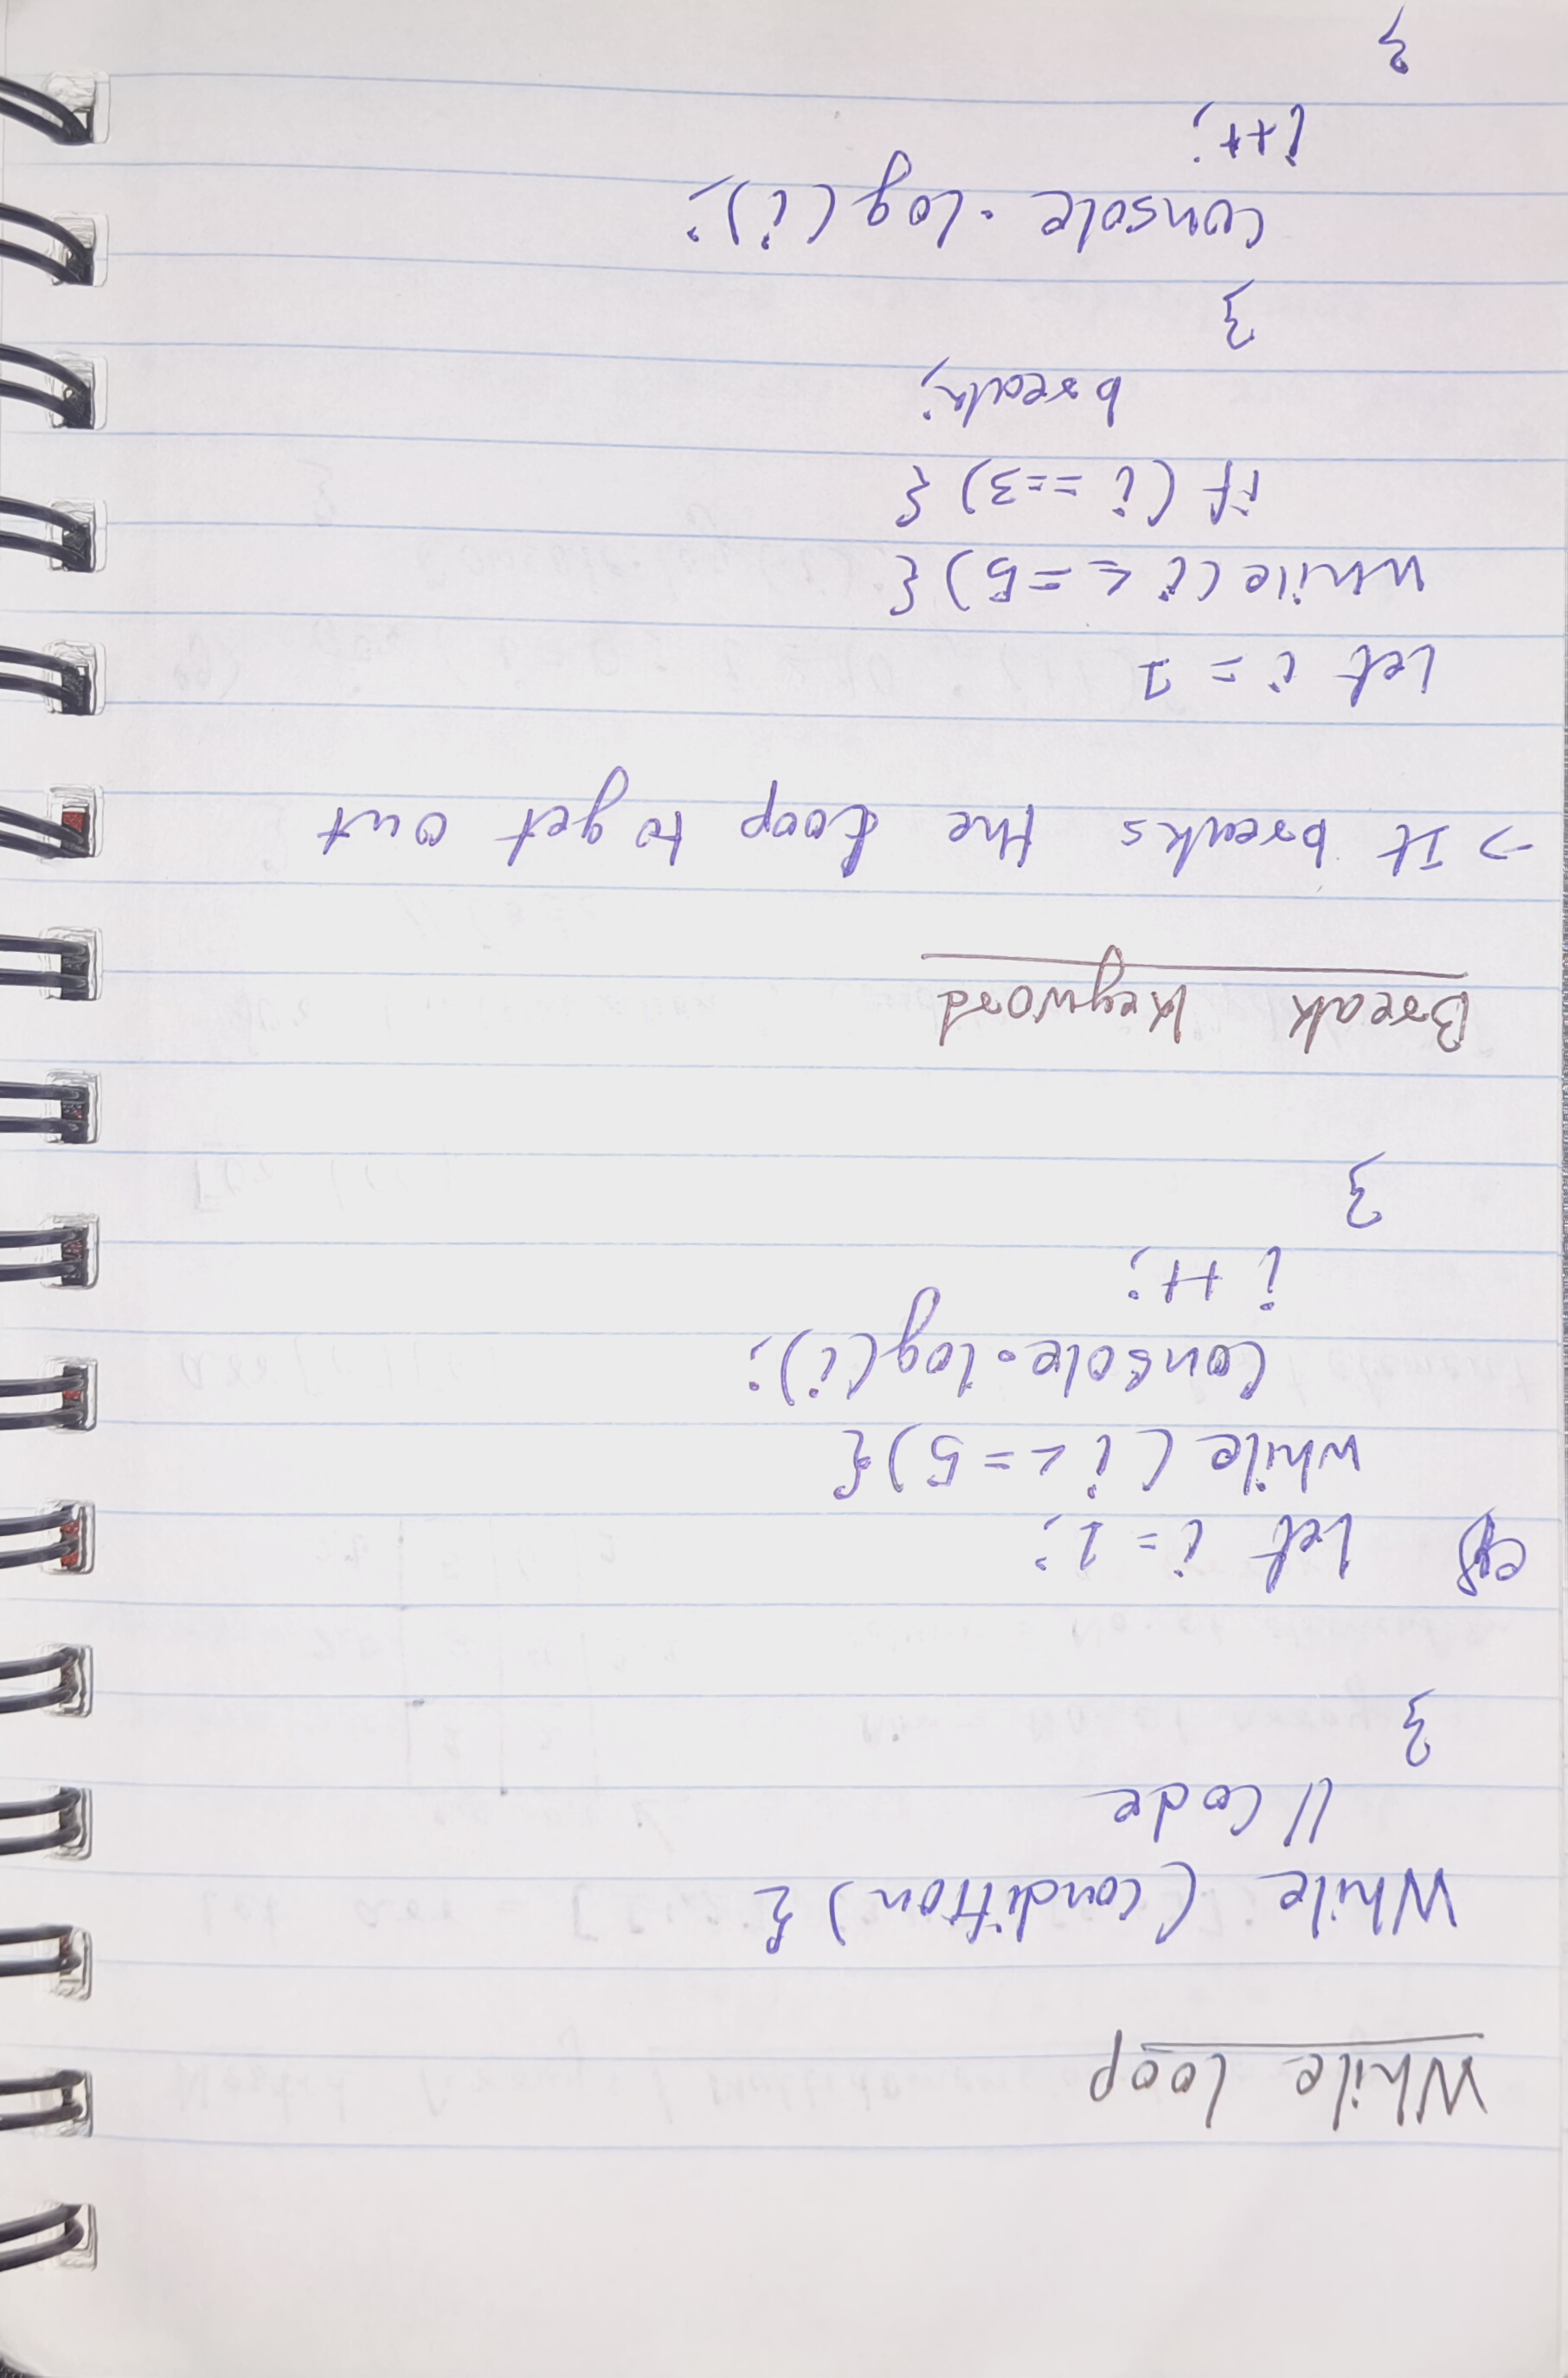 While loop
While (condition) {
// Code
}
eg) Let i = 1;
while ( i <= 5) {
Console.log(i);
i ++;
}
Break Keyword
→ It breaks the Loop to get out
Let i = 1
while (i <= 5) {
if (i ==3) {
break;
}
console.log(i);
i++;
}